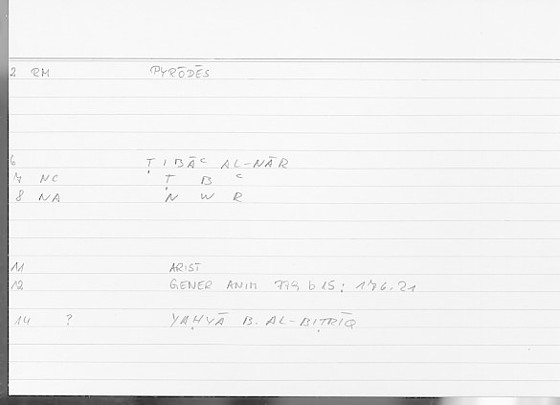 2 RM PYRŌDĒS
6 ṬIBĀʿ AL-NĀR
7 NC Ṭ B ʿ
8 NA N W R
11 ARIST
12 GENER ANIM 779 b 15; 176.21
14 ? YAḤYĀ B. AL-BIṬRĪQ